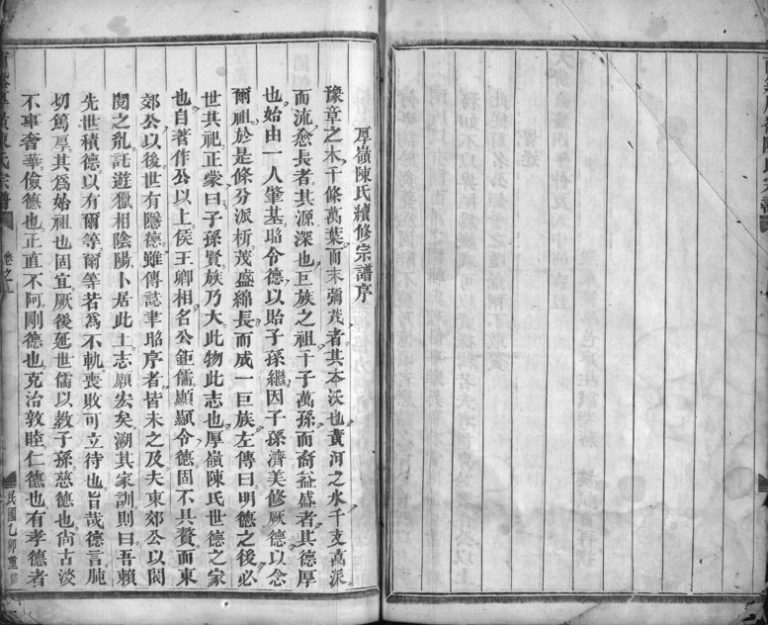 厚嶺陳氏續修宗譜序
豫章之木千條萬葉而末彌茂者其本沃也黃河之水千支萬派
而流愈長者其源深也巨族之祖千子萬孫而裔益盛者其德厚
也始由一人肇基貽令德以貽子孫繼因子孫濟美修厥德以念
爾祖於是條分派析茂盛綿長而成一巨族左傳曰明德之後必
世其祀正蒙曰子孫賢族乃大此物此志也厚嶺陳氏世德之家
也自著作公以上侯王卿相名公鉅儒顯顯令德固不具贅而東
郊公以後世有隱德雖傳誌聿昭序者皆未之及夫東郊公以閩
閩之亂託遊獵相陰陽卜居此土志願宏矣溯其家訓則曰吾賴
先世積德以有爾等爾等若為不軌喪敗可立待也旨哉德言肫
切篤厚其為始祖也固宜厥後延世儒以教子孫慈德也尚古淡
不事奢華儉德也正直不阿剛德也克治敦睦仁德也有孝德者
陳氏宗譜
卷之
民國乙卯重修